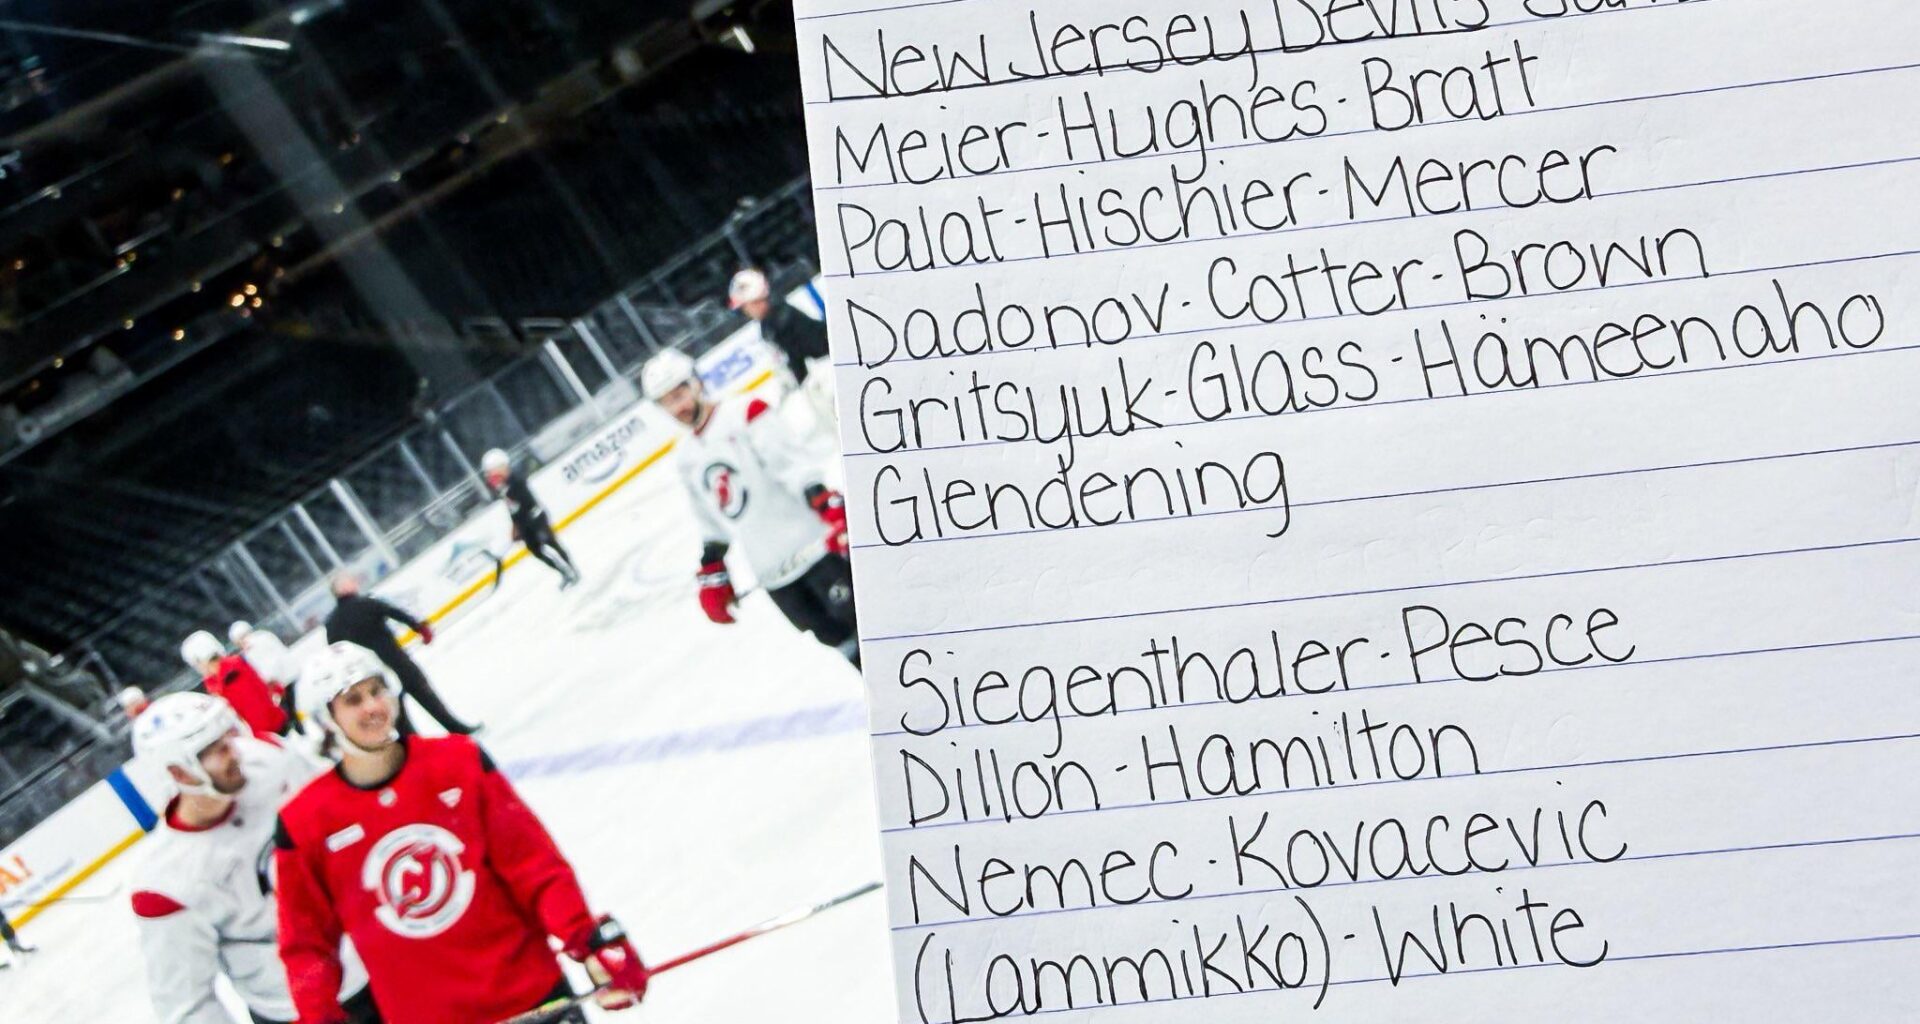 New Jersey Devils
Meier-Hughes-Bratt
Palat-Hischier-Mercer
Dadonov-Cotter-Brown
Gritsyuk-Glass-Hämeenaho
Glendening
Siegenthaler-Pesce
Dillon-Hamilton
Nemec-Kovacevic
(Lammikko)-White
amazon